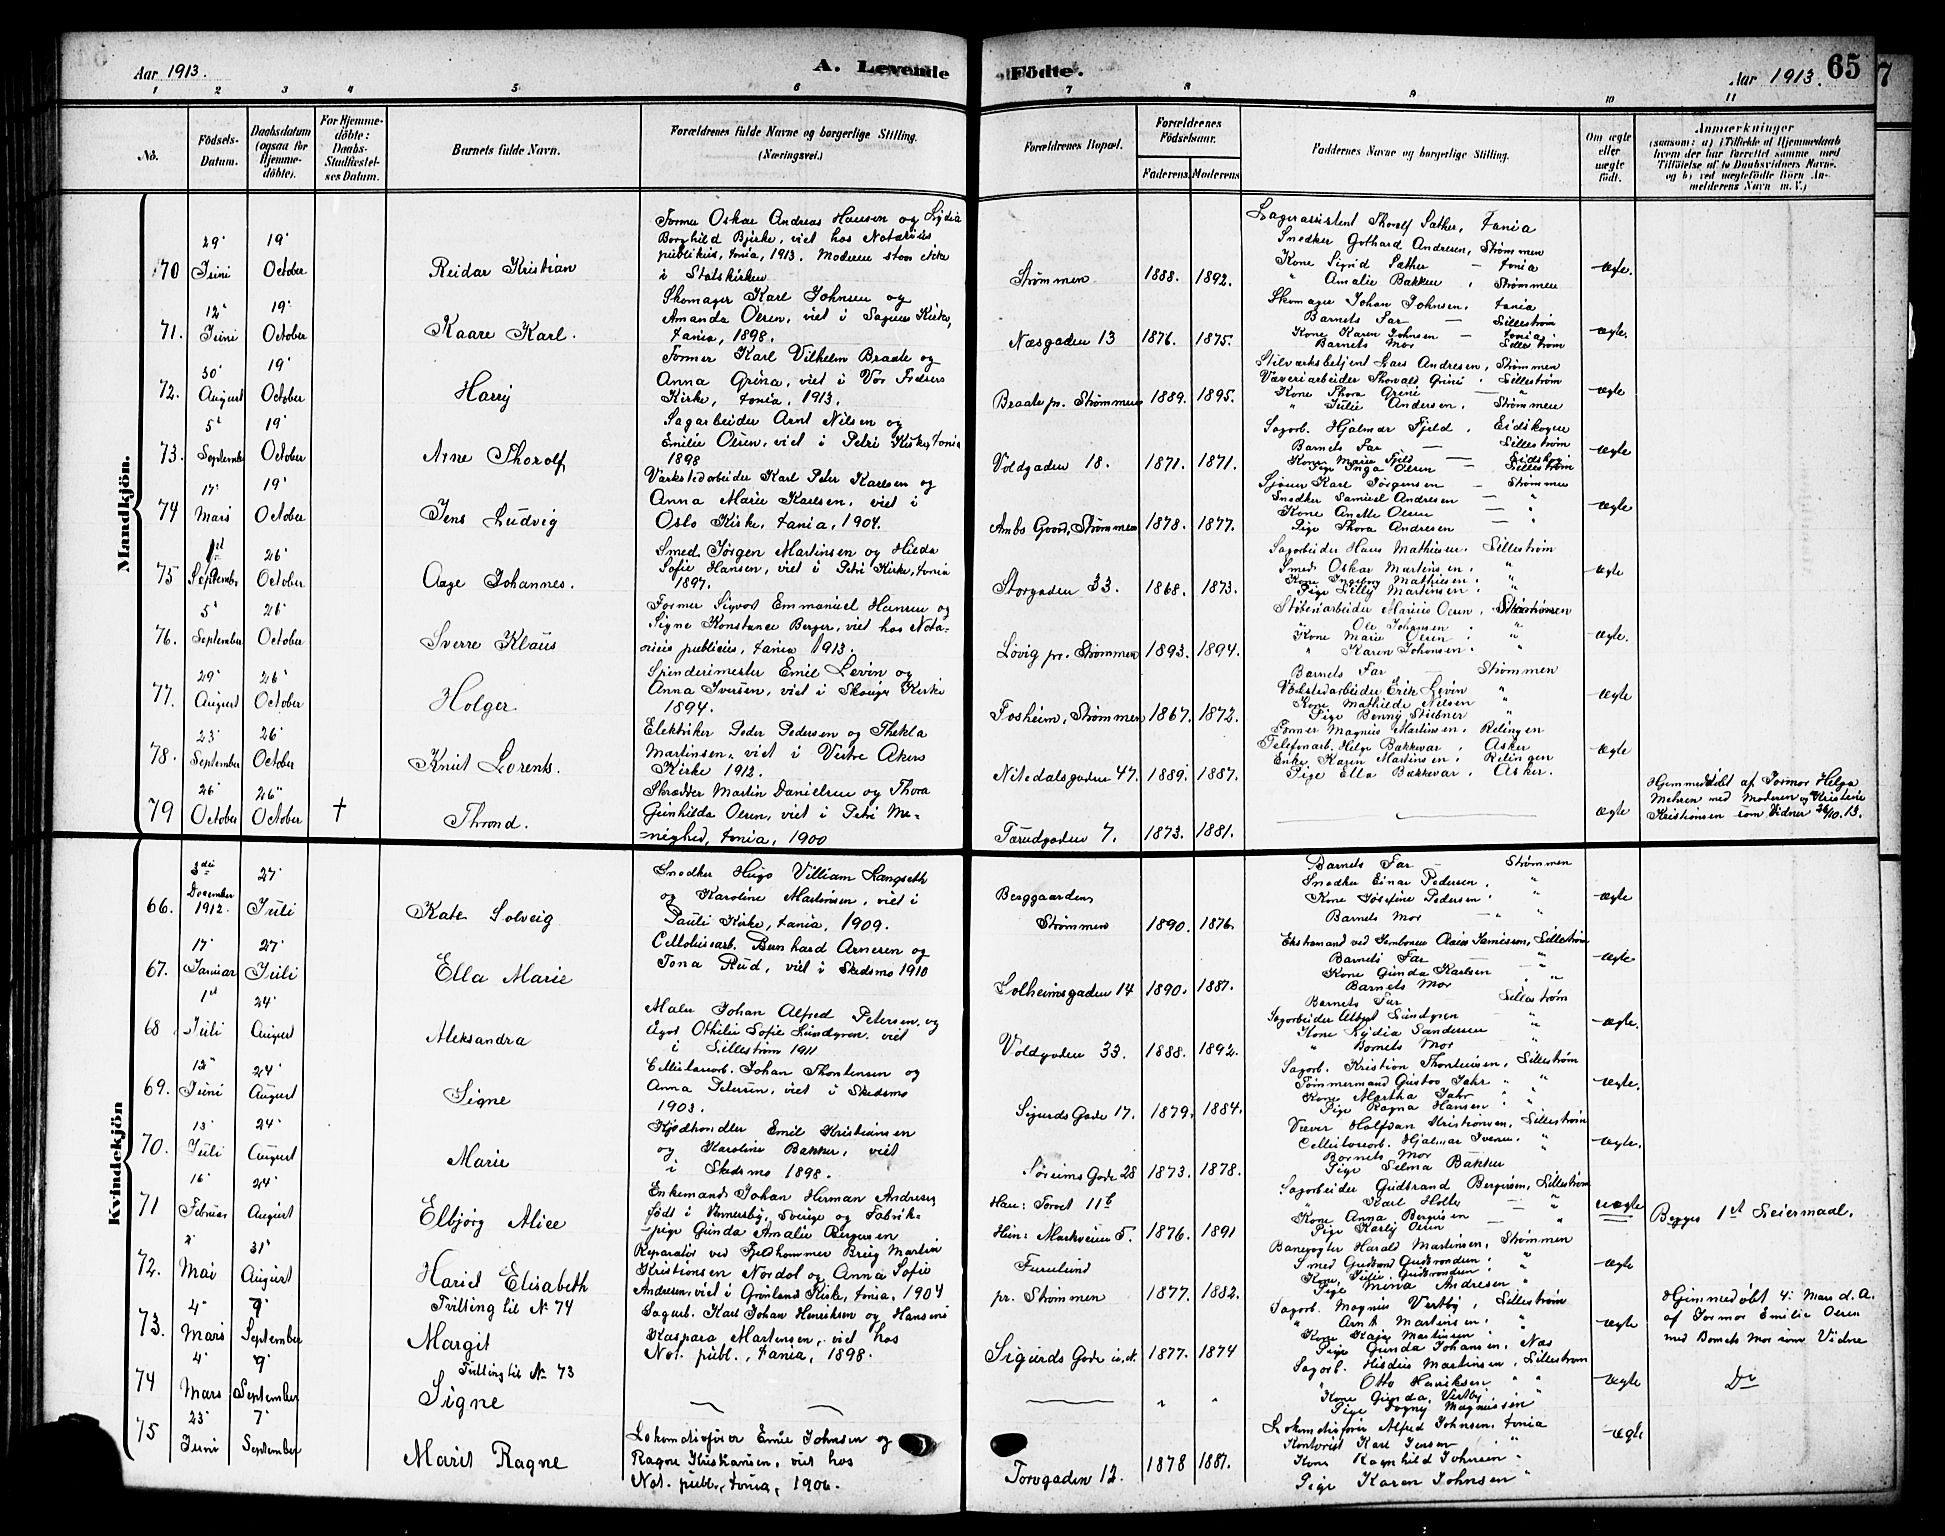 Aar 1913.
A. Levende
Födte.
Aar 1913.
65
7
1 2 3 4 5 6 7 8 9 10 11
No.
Födsels-Datum.
Daabsdatum (ogsaa for Hjemme-döbte).
For Hjemme-döbte: Daabs-Stadfæstel-ses Datum.
Barnets fulde Navn.
Forældrenes fulde Navne og borgerlige Stilling. (Næringsvei.)
Forældrenes Bopæl.
Forældrenes Födselsaar.
Faderens. Moderens.
Faddernes Navne og borgerlige Stilling.
Om ægte eller uægte født.
Anmærkninger
(saasom: a) i Tilfælde af Hjemmedaab
hvem der har forrettet samme, med
Tilföielse af to Daabsvidners Navne,
og b) ved uægtefödte Börn An-
melderens Navn m. V.)
Mandkjön.
70 29' Juni 19' October Reidar Kristian
Former Oskar Andreas Hansen og Lydia
Borghild Bjerke, viet hos Notarius
publikus, Xania, 1913. Moderen staar ikke
i Statskirken
Strømmen 1888. 1892.
Lagerassistent Thorolf Sæther, Xania
Snedker Gothard Andresen, Strømmen
Kone Sigrid Sæther — Xania
" Amalie Bakken, Strømmen
ægte.
71. 12' Juni 19' October Kaare Karl.
Skomager Karl Johnsen og
Amanda Olsen, viet i Sagnes Kirke,
Xania, 1898.
Næsgaden 13 1876. 1875.
Skomager Johan Johnsen, Xania
Barnets Far — Lillestrøm
Kone Karen Johnsen — Xania
Barnets Mor Lillestrøm
ægte.
72. 30' August 19' October Harry
Former Karl Vilhelm Braate og
Anna Grina, viet i Vor Frelsers
Kirke, Xania, 1913.
Braate pr. Strømmen 1889. 1895.
Lars Andresen, Strømmen
Væveriarbeider Thorvald Grini, Lillestrøm
Kone Thora Grini — "
" Julie Andersen, Strømmen
ægte
73. 5' September 19' October Arne Thorolf
Sagarbeider Arnt Nilsen og
Emilie Olsen, viet i Petri Kirke, Xania
1898
Voldgaden 18. 1871. 1871.
Sagarb. Hjalmar Fjeld, Eidskogen
Barnets Far — Lillestrøm
Kone Marie Fjeld — Eidskog
Pige Inga Olsen — Lillestrøm
ægte
74 17' Mars 19' October Jens Ludvig
Værkstedarbeider Karl Peter Karlsen og
Anna Marie Karlsen, viet i
Oslo Kirke, Xania, 1904.
Ambs Gaard, Strømmen 1878. 1877.
Karl Jörgensen — Strømmen
Snedker Samuel Andresen — "
Kone Anette Olsen — "
Pige Thora Andresen — "
ægte
75 1st September 26' October Aage Johannes.
Smed Jörgen Martinsen og Hilda
Sofie Hansen, viet i Petri Kirke, Xania
1897.
Storgaden 33. 1868. 1873.
Sagarbeider Hans Mathisen. Lillestrøm
Smed Oskar Martinsen. "
Kone Ingeborg Mathisen. "
Pige Lilly Martinsen. "
ægte
76. 5' September 26' October Sverre Klaus
Former Sigvart Emmanuel Hansen og
Signe Konstance Berger, viet hos Nota-
rius publicus, Xania 1913.
Løvig pr. Strømmen 1893. 1894.
Støberiarbeider Marius Olsen, Strømmen
" Ole Johansen, "
Kone Marie Olsen, "
" Karen Johansen. "
ægte.
77. 29' August 26' October Holger.
Spinderimester Emil Levin og
Anna Iversen, viet i Skouger Kirke
1894.
Fosheim, Strømmen 1867. 1872.
Barnets Far — Strømmen
Værkstedarbeider Erik Levin "
Kone Mathilde Nilsen "
Pige Benny Stübner "
ægte
78. 23' September 26' October Knut Lorents.
Elektriker Peder Pedersen og Thekla
Martinsen, viet i Vestre Akers
Kirke 1912.
Nitedalsgaden 47. 1889. 1887.
Former Magnus Martinsen, Relingen
Telefonarb. Helge Bakkevar, Asker
Enke Karen Martinsen, Relingen
Pige Ella Bakkevar, Asker.
ægte
79 26' October 26" October † Thrond.
Skrædder Martin Danielsen og Thora
Gunhilda Olsen, viet i Petri Me-
nighed, Xania, 1900
Tærudgaden 7. 1873. 1881.
ægte
Hjemmedøbt af Jormor Helga
Mehren med Moderen og Kristine
Kristiansen som Vidner 26/10.13.
Kvindekjön
66. 3die December 1912. 27' Juli Kate Solveig
Snedker Hugo Villiam Langseth
og Karoline Martinsen, viet i
Pauli Kirke, Xania, 1909.
Berggaarden, Strømmen 1890. 1876.
Barnets Far — Strømmen
Snedker Einar Pedersen, "
Kone Josefine Pedersen, "
Barnets Mor — "
ægte
67. 17' Januar 27' Juli Ella Marie
Cellolusearb. Bernhard Arnesen og
Tona Rud, viet i Skedsmo 1910
Solheimsgaden 14 1890. 1887.
Ekstramand ved Jernbanen Lillestrøm
Barnets Far — "
Kone Gunda Karlsen — "
Barnets Mor "
ægte
68. 1st Juli 24' August Aleksandra
Maler Johan Alfred Petersen og
Agot Othilie Sofie Lundgren, viet
i Lillestrøm 1911
Voldgaden 33. 1888. 1892.
Barnets Far Lillestrøm
Sagarbeider Albert Lundgren — "
Kone Lydia Sandersen "
" Barnets Mor — "
ægte.
69. 12' Juni 24' August Signe
Cellulosearb. Johan Thoritensen og
Anna Petersen, viet i Skedsmo
1903.
Sigurds Gade 17. 1879. 1884.
Sagarb. Kristian Lillestrøm
Tømmermand Gustav Jahr "
Kone Martha Jahr "
Pige Ragna Hansen "
ægte.
70. 13' Juli 24' August Marie
Kjødhandler Emil Kristiansen
og Karoline Bakker, viet
i Skedsmo 1898.
Sørums Gade 28 1873. 1878.
Væver Halfdan Kristiansen, Lillestrøm
Cellulosearb. Hjalmar Iversen. "
Barnets Mor "
Pige Selma Bakker
ægte.
71 16' Februar 24' August Elbjörg Alice
Enkemand Johan Herman Andresen,
født i Venersby, Sverige og Fabrik-
pige Gunda Amalie Bergersen
Han: Torvet 11b
Hun: Markveien 5. 1876. 1891
Sagarbeider Gudbrand Bergersen, Lillestrøm
" Karl Holte — "
Kone Anna Bergersen — "
Pige Karly Olsen
uægte
Begges 1st Leiermaal.
72. 2' Mai 31' August Hariet Elisabeth
Reparatør ved Fjeldhammer Brug Martin
Kristiansen Nordal og Anna Sofie
Andersen, viet i Grønland Kirke, Xania, 1904
Furulund
pr. Strømmen 1877. 1882.
Banevogter Harald Martinsen, Strømmen
Smed Gudbrand Gudbrandsen, "
Kone Julie Gudbrandsen, "
Pige Mina Andresen "
ægte
73. 4' Mars 9' September
Tvilling til № 74
Margit
Sagarb. Karl Johan Henriksen og Hansine
Kaspara Martinsen, viet hos
Not. publ., Xania, 1898.
Sigurds Gade 1877. 1874
Sagarb. Magnus Vestby, Lillestrøm
" Arnt Martinsen, "
Kone Kaja Martinsen, "
Pige Gunda Johansen, Næs
ægte
Hjemmedøbt 4' Mars d. A.
af Jormor Emilie Olsen
med Barnets Mor som Vidne
74 4' Mars 9' September
Tvilling til № 73
Signe
Sagarb. Martinsen, Lillestrøm
" Otto Henriksen "
Kone Gunda Vestby "
Pige Magnussen "
ægte
Do
75 23' Juni 7' September Marit Ragne
Lokomotivfører Emil Johnsen og
Ragna Kristiansen, viet hos
Not. publ., Xania, 1906.
Torvgaden 12. 1878 1887.
Lokomotivfører Alfred Johnsen, Xania
Kontorist Karl Jensen "
Kone Ragnhild Johnsen "
Pige Karen Johnsen "
ægte